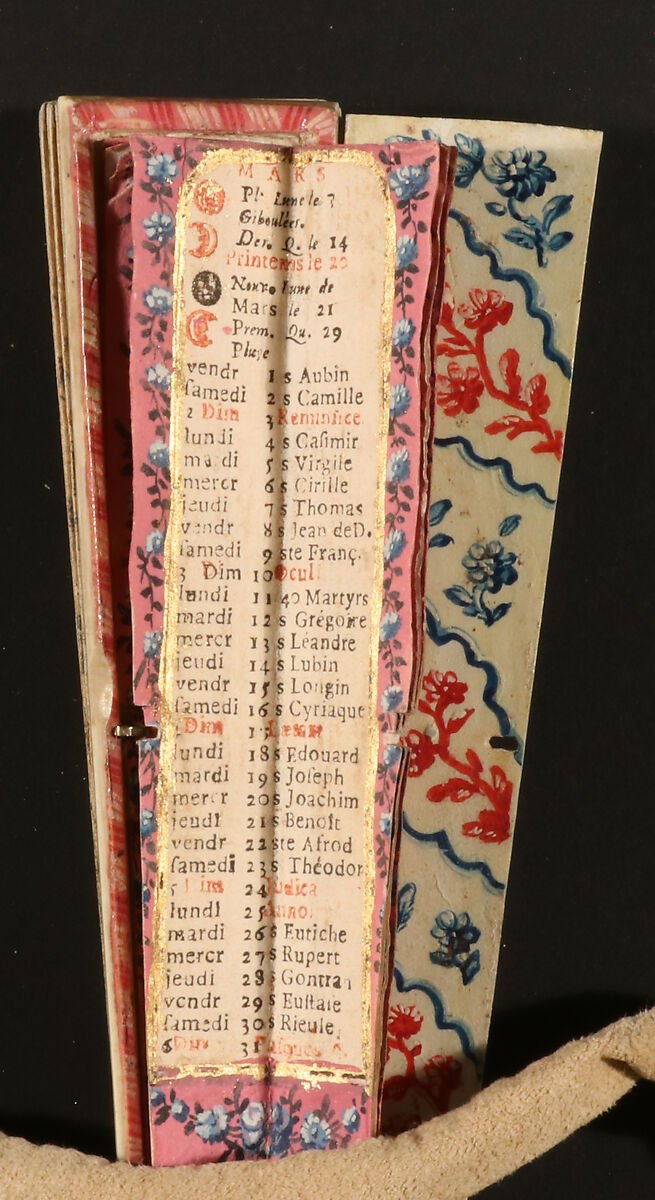 MARS
Pl. Lune le 7
Giboulées.
Der. Q. le 14
Printems le 20
Nouv. Lune de
Mars le 21
Prem. Qu. 29
Pluye
vendr 1 s Aubin
ſamedi 2 s Camille
2 Dim 3 Reminiſce.
lundi 4 s Caſimir
mardi 5 s Virgile
mercr 6 s Cirille
jeudi 7 s Thomas
vendr 8 s Jean de D.
ſamedi 9 ste Franç.
3 Dim 10 Oculi
lundi 11 40 Martyrs
mardi 12 s Grégoire
mercr 13 s Léandre
jeudi 14 s Lubin
vendr 15 s Longin
ſamedi 16 s Cyriaque
Dim 17 Lætare
lundi 18 s Edouard
mardi 19 s Joſeph
mercr 20 s Joachim
jeudi 21 s Benoît
vendr 22 ste Afrod
ſamedi 23 s Théodor
5 Dim 24 Judica
lundi 25 Anno.
mardi 26 s Eutiche
mercr 27 s Rupert
jeudi 28 s Gontran
vendr 29 s Euſtaſe
ſamedi 30 s Rieule,
6 Dim 31 Paſques